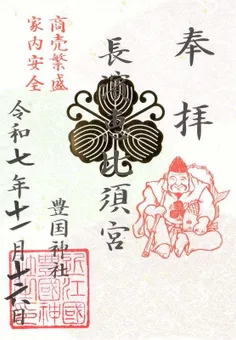 奉拝
長濱恵比須宮
豊国神社
商売繁盛
家内安全
令和七年十一月十六日